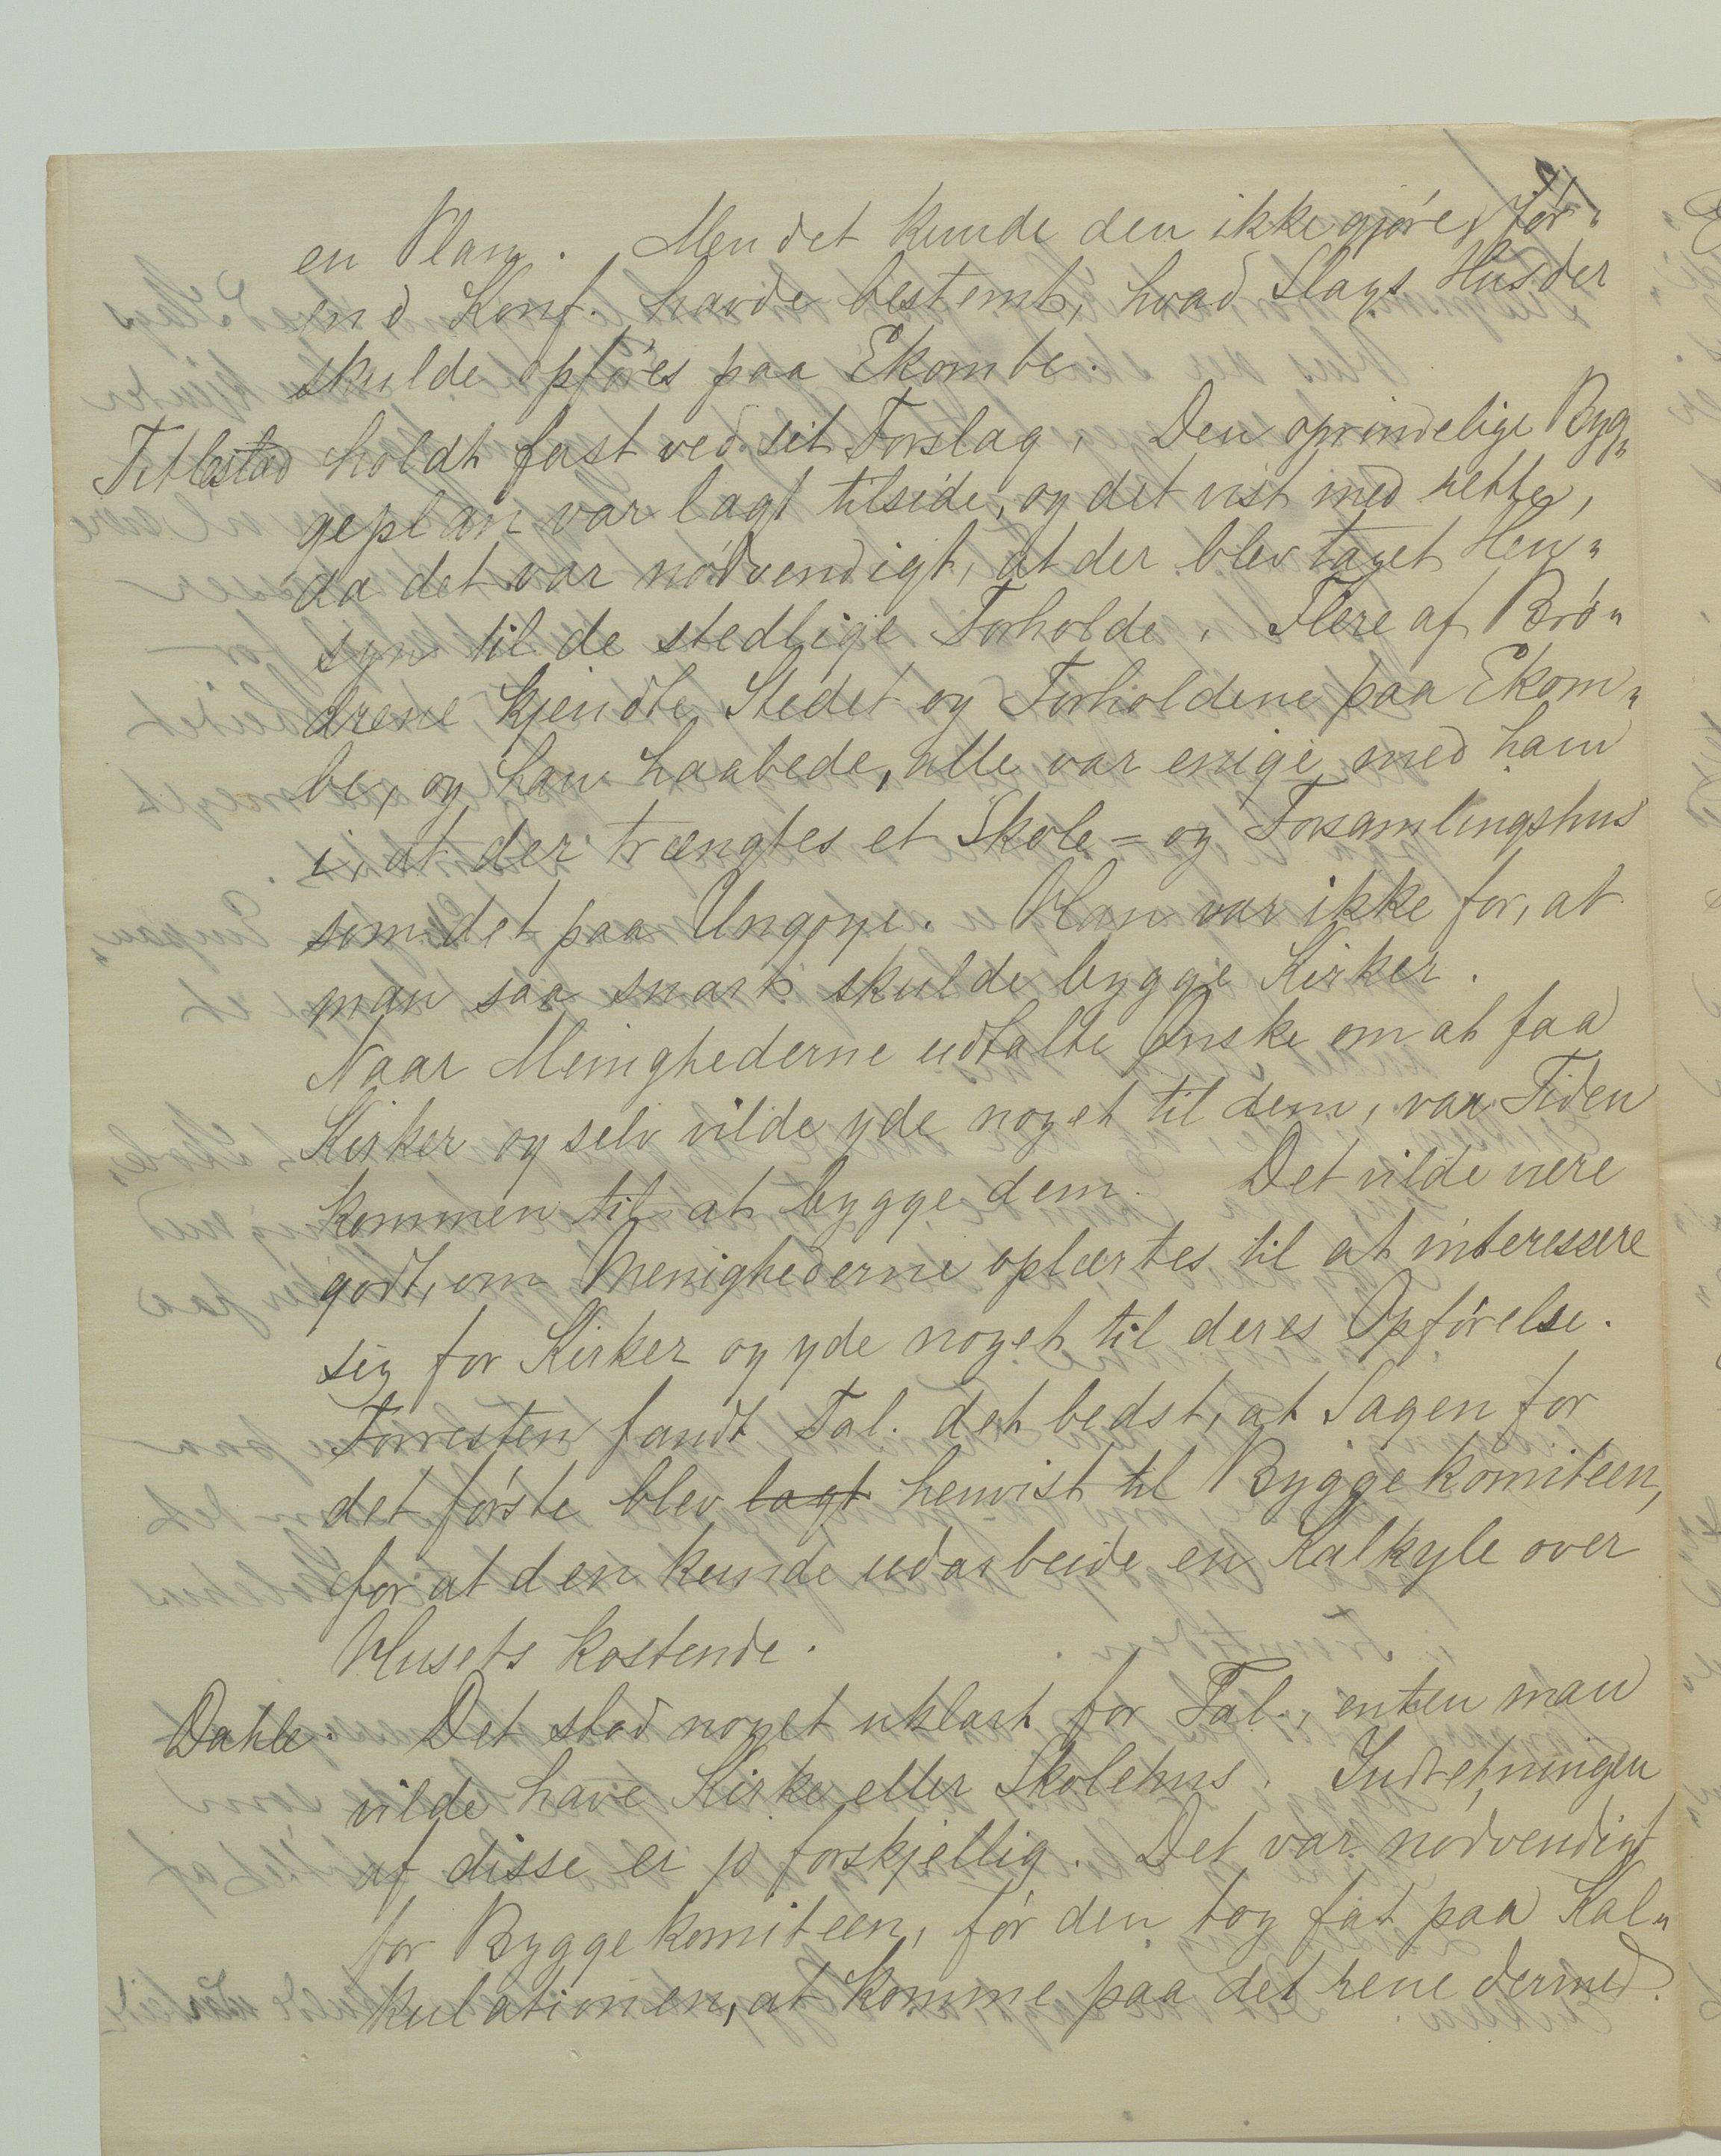 en Plan. Men det kunde den ikke gjøre, før„
end Konf. havde bestemt, hvad Slags Hus der
skulde opføres paa Ekombe.
Titlestad holdt fast ved sit Forslag. Den oprindelige Byg„
geplan var lagt tilside, og det vist med rette,
da det var nødvendigt, at der blev taget Hen„
syn til de stedlige Forholde. Flere af Brø„
drene kjendte Stedet og Forholdene paa Ekom„
be, og han haabede, alle var enige med ham
i, at der trængtes et Skole= og Forsamlingshus
som det paa Ungoye. Han var ikke for, at
man saa snart skulde bygge Kirker.
Naar Menighederne udtalte Ønske om at faa
Kirker og selv vilde yde noget til dem, var Tiden
kommen til at bygge dem. Det vilde være
godt, om Menighederne oplærtes til at interessere
sig for Kirker og yde noget til deres Opførelse.
Forresten fandt Tal. det bedst, at Sagen for
det første blev lagt henvist til Byggekomiteen,
for at den kunde udarbeide en Kalkyle over
Husets Kostende.
Dahle. Det stod noget uklart for Tal., enten man
vilde have Kirke eller Skolehus. Indretningen
af disse er jo forskjellig. Det var nødvendigt
for Byggekomiteen, før den tog fat paa Kal„
kulationen, at komme paa det rene dermed.